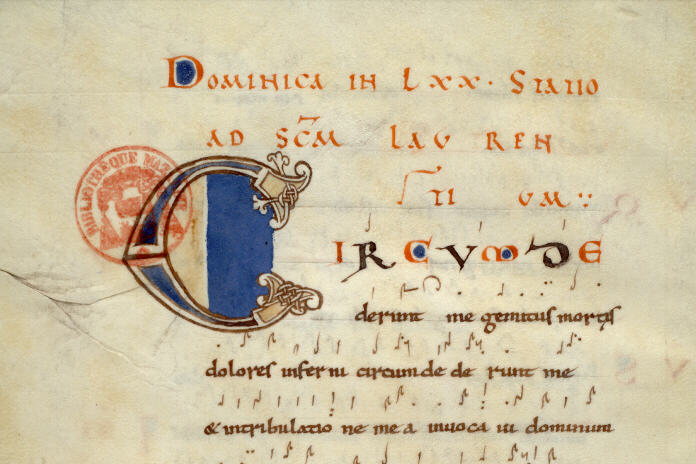 DOMINICA IN LXX· STATIO
AD SCM LAU REN
TI UM
CIRCUMDE
derunt me gemitus mortis
dolores inferni circumde de runt me
& intribulatio ne me a invoca vi dominum
BIBLIOTHÈQUE